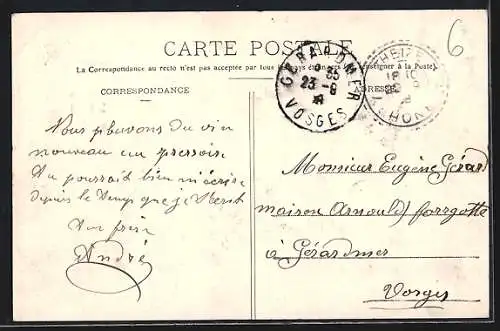 CARTE POSTALE
La Correspondance au recto n'est pas acceptée par tous les pays étrangers (Se renseigner à la Poste)
CORRESPONDANCE
ADRESSE
GERARDMER
23 -9
VOSGES
THEIZE
RHONE
6
Nous pleuvons du vin
nouveau au pressoir
Tu pourrait bien m'écrire
depuis le temps que je t'écrit
Ton
André
Monsieur Eugène Gérard
maison Arnould
à Gérardmer
Vosges